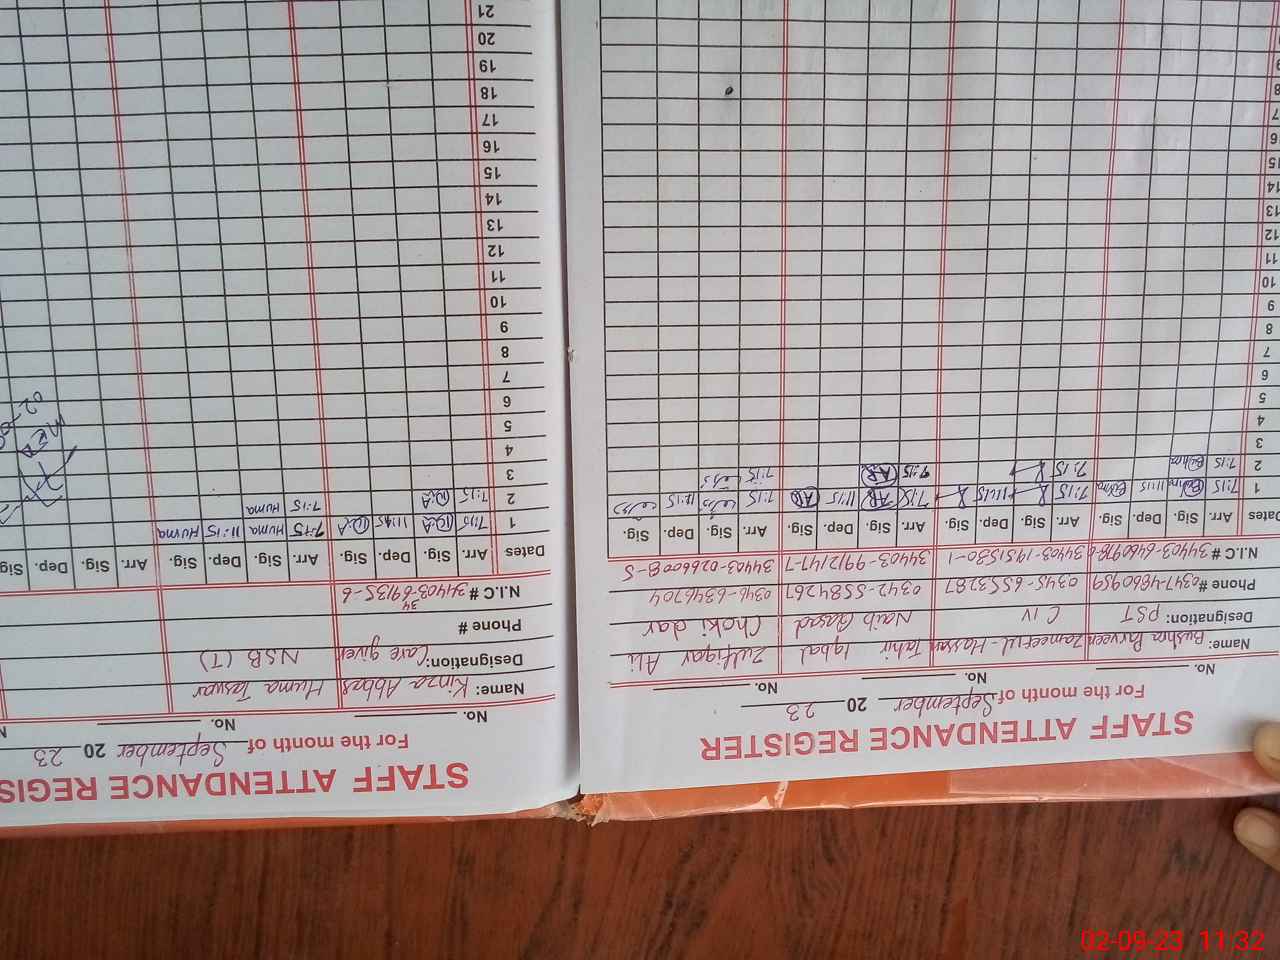 STAFF ATTENDANCE REGISTER
For the month of September 20 23
No. No. No.
Name: Bushra Parveen Zameerul-Hassan Tahir Iqbal Zulfiqar Ali
Designation: PST C IV Naib Qasad Choki dar
Phone # 0347-4860959 0345-6553287 0342-5584267 0346-6346704
N.I.C # 34403-1951530-1 34403-9912147-7 34403-0266008-5
Dates Arr. Sig. Dep. Sig. Arr. Sig. Dep. Sig. Arr. Sig. Dep. Sig. Arr. Sig. Dep. Sig.
1 7:15 11:15 7:15 11:15 7:15 11:15 7:15 11:15
2 7:15 7:15 7:15 7:15
3
4
5
6
7
8
9
10
11
12
13
14
15
16
17
18
STAFF ATTENDANCE REGIS
For the month of September 20 23
No. No.
Name: Kinza Abbas Huma Taswar
Designation: Care giver NSB (T)
Phone #
N.I.C #
Dates Arr. Sig. Dep. Sig. Arr. Sig. Dep. Sig. Arr. Sig. Dep. Sig.
1 7:15 K.A 11:45 K.A 7:15 Huma 11:15 Huma
2 7:15 K.A 7:15 Huma
3
4
5
6
7
8
9
10
11
12
13
14
15
16
17
18
19
20
21
MEA
02-09-23 11:32